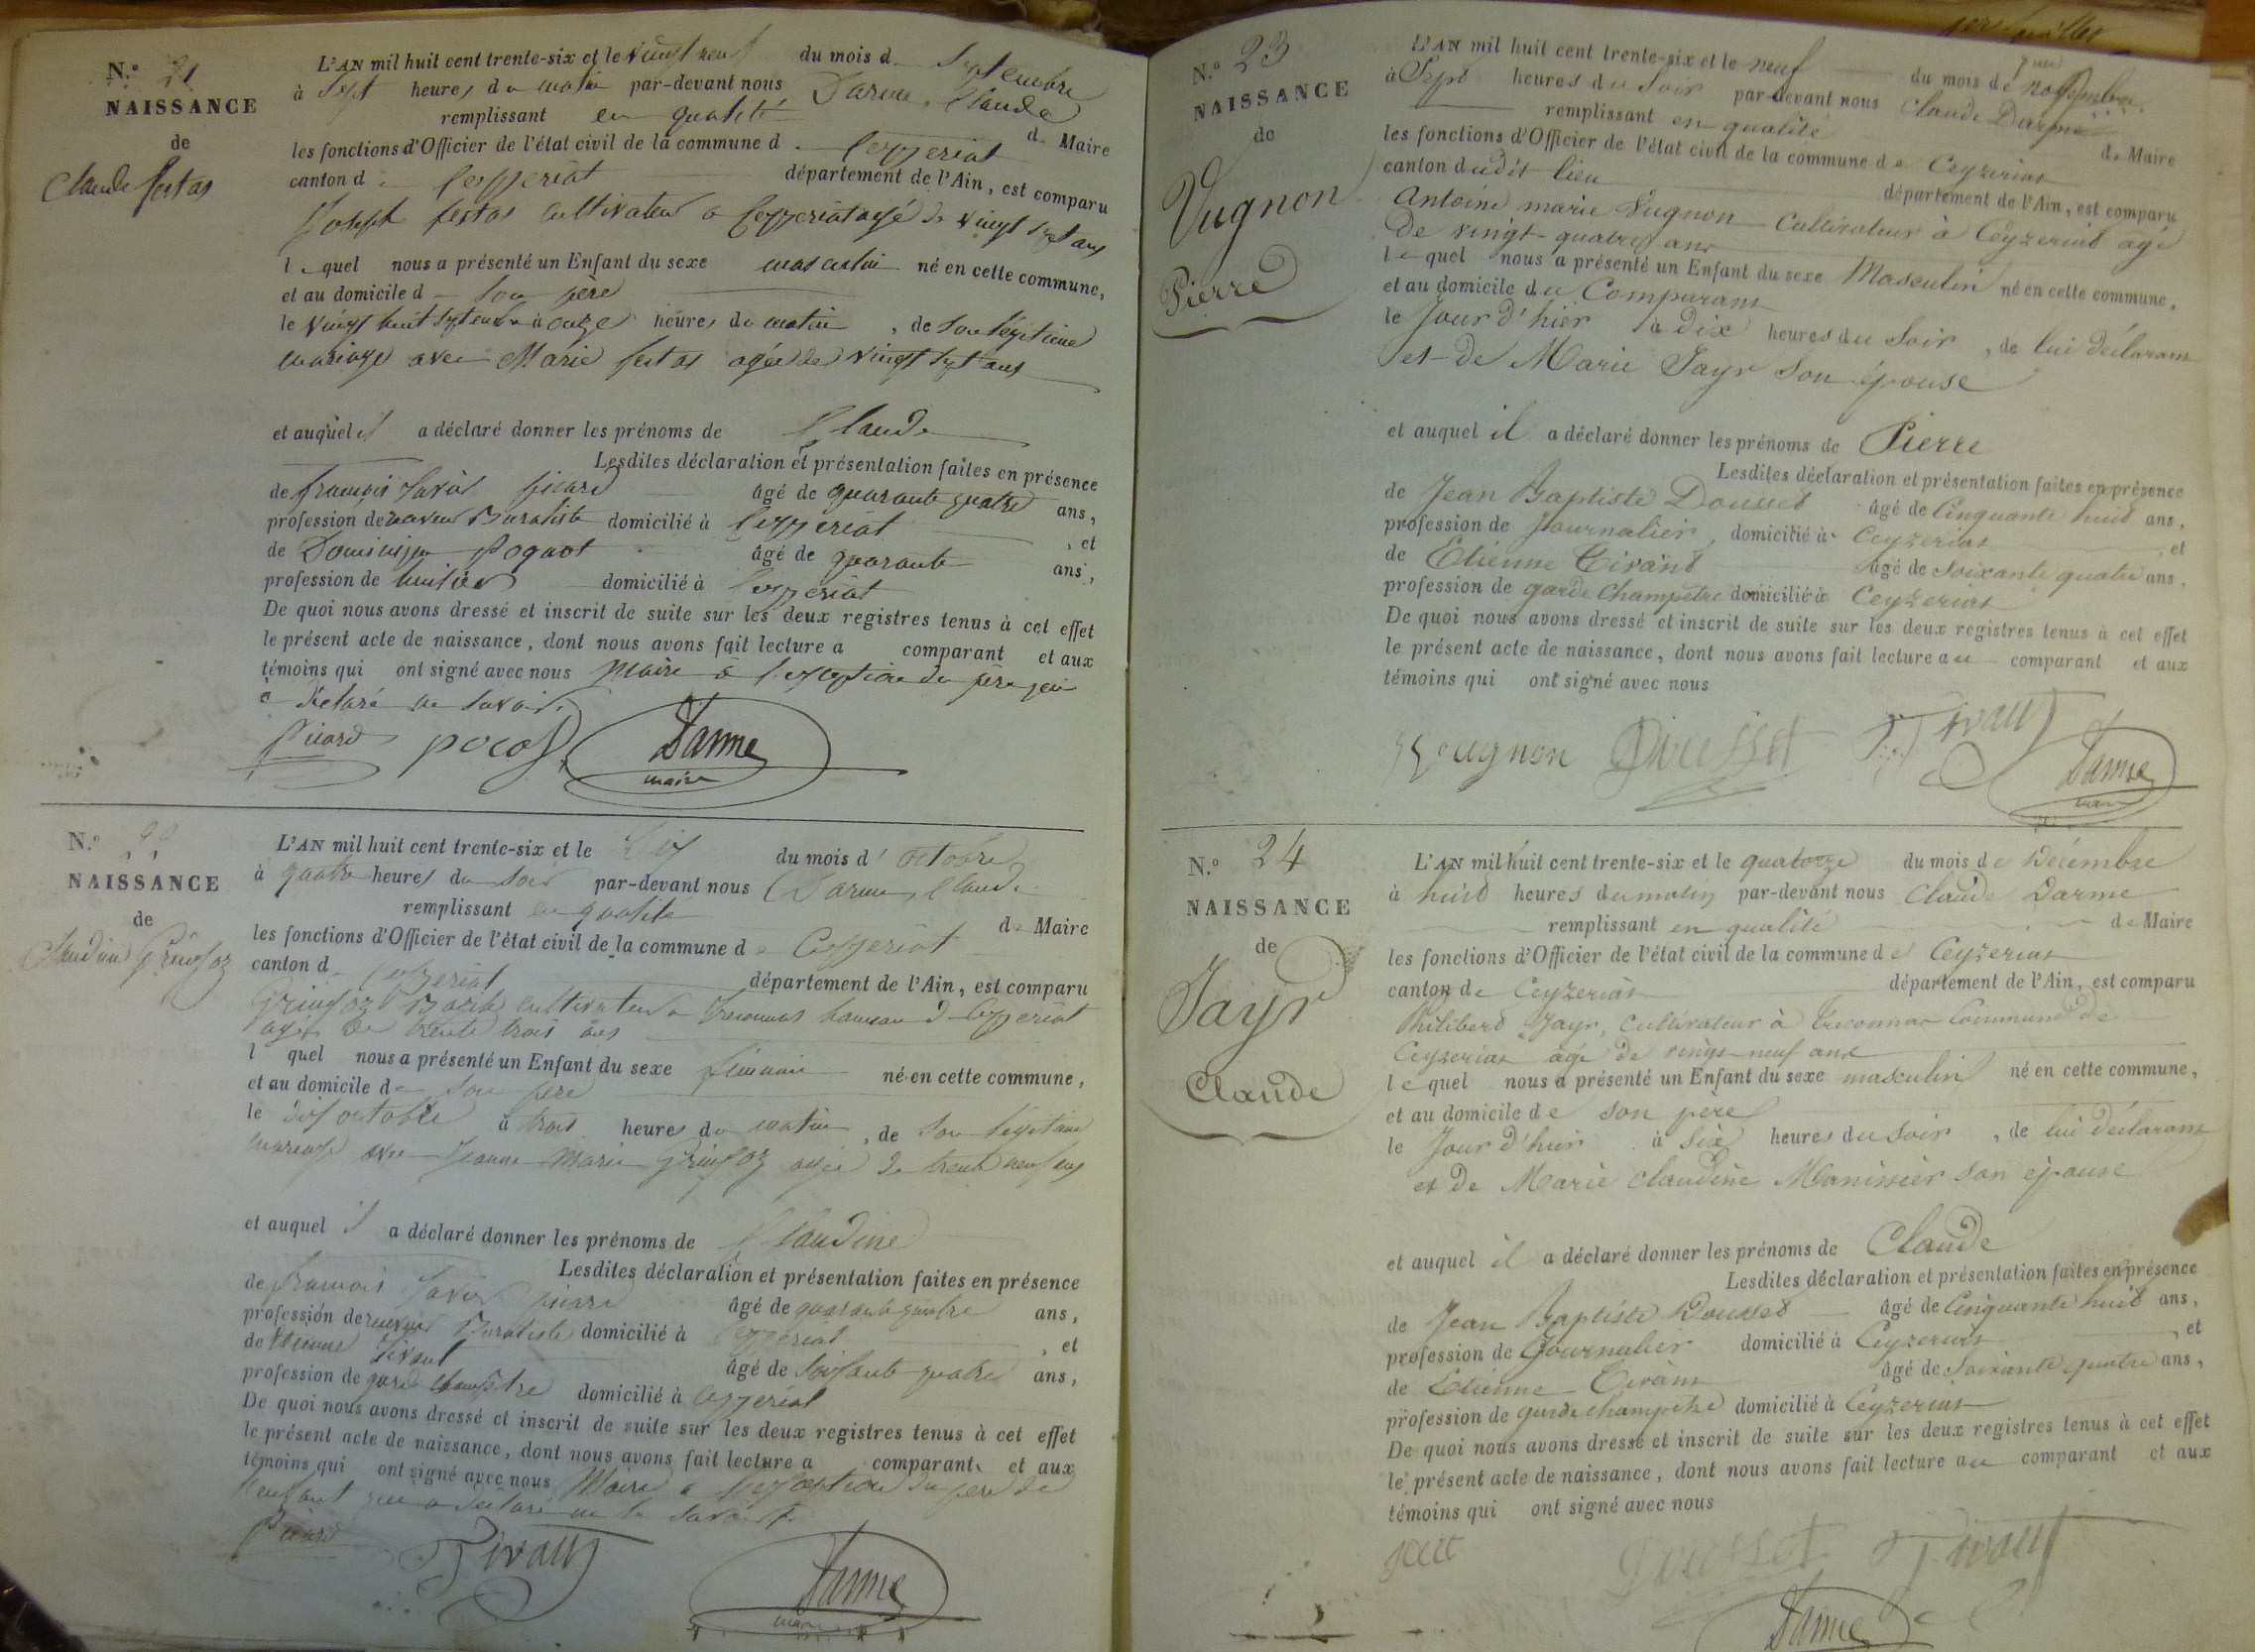 N.º 21
NAISSANCE
de
Claude festas
L'AN mil huit cent trente-six et le vingt neuf du mois d septembre
à sept heures du matin par-devant nous Darme, Claude
remplissant en qualité de Maire
les fonctions d'Officier de l'état civil de la commune d Ceyzeriat
canton d Ceyzeriat département de l'Ain, est comparu
Joseph festas cultivateur a Ceyzeriat agé de vingt sept ans
lequel nous a présenté un Enfant du sexe masculin né en cette commune,
et au domicile d son père
le vingt huit septembre à onze heures du matin, de son légitime
mariage avec Marie festas agée de vingt sept ans
et auquel il a déclaré donner les prénoms de Claude
Lesdites déclaration et présentation faites en présence
de françois Xavier picard âgé de quarante quatre ans,
profession de receveur Buraliste domicilié à Ceyzeriat, et
de Dominique âgé de quarante ans,
profession de huissier domicilié à Ceyzeriat
De quoi nous avons dressé et inscrit de suite sur les deux registres tenus à cet effet
le présent acte de naissance, dont nous avons fait lecture a comparant et aux
témoins qui ont signé avec nous Maire a l'exception du père qui
a déclaré ne savoir.
Picard Darme
maire
N.º 22
NAISSANCE
de
Claudine
L'AN mil huit cent trente-six et le dix du mois d'octobre
à quatre heures du soir par-devant nous Darme, Claude
remplissant en qualité de Maire
les fonctions d'Officier de l'état civil de la commune d Ceyzeriat
canton d Ceyzeriat département de l'Ain, est comparu
cultivateur a Treconnas hameau de Ceyzeriat
agé de trente trois ans
l quel nous a présenté un Enfant du sexe féminin né en cette commune,
et au domicile de son père
le dix octobre à trois heures du matin, de son légitime
mariage avec Jeanne Marie agée de trente neuf ans
et auquel il a déclaré donner les prénoms de Claudine
Lesdites déclaration et présentation faites en présence
de françois Xavier picard âgé de quarante quatre ans,
profession de receveur Buraliste domicilié à Ceyzeriat, et
de Etienne Tirant âgé de soixante quatre ans,
profession de garde champêtre domicilié à Ceyzeriat
De quoi nous avons dressé et inscrit de suite sur les deux registres tenus à cet effet
le présent acte de naissance, dont nous avons fait lecture a comparant et aux
témoins qui ont signé avec nous Maire a l'exception du père de
l'enfant qui a déclaré ne le savoir.
Picard Tirant Darme
maire
N.º 23
NAISSANCE
de
Vugnon
Pierre
L'AN mil huit cent trente-six et le neuf du mois de novembre
à Sept heures du soir par-devant nous Claude Darme
remplissant en qualité de Maire
les fonctions d'Officier de l'état civil de la commune de Ceyzeriat
canton dudit lieu département de l'Ain, est comparu
Antoine marie Vugnon cultivateur à Ceyzeriat agé
De vingt-quatre ans
lequel nous a présenté un Enfant du sexe Masculin né en cette commune,
et au domicile du Comparant
le Jour d'hier à dix heures du soir, de lui déclarant
et de Marie Jayr son épouse
et auquel il a déclaré donner les prénoms de Pierre
Lesdites déclaration et présentation faites en présence
de Jean Baptiste Dousset âgé de Cinquante huit ans,
profession de Journalier, domicilié à Ceyzeriat, et
de Etienne Tirant âgé de soixante quatre ans,
profession de garde champêtre domicilié à Ceyzeriat
De quoi nous avons dressé et inscrit de suite sur les deux registres tenus à cet effet
le présent acte de naissance, dont nous avons fait lecture au comparant et aux
témoins qui ont signé avec nous
Vugnon Dousset Tirant
Darme
maire
N.º 24
NAISSANCE
de
Jayr
Claude
L'AN mil huit cent trente-six et le quatorze du mois de Décembre
à huit heures du matin par-devant nous Claude Darme
remplissant en qualité de Maire
les fonctions d'Officier de l'état civil de la commune de Ceyzeriat
canton de Ceyzeriat département de l'Ain, est comparu
Philibert Jayr, cultivateur à Treconnas Commune de
Ceyzeriat agé de vingt-neuf ans
lequel nous a présenté un Enfant du sexe masculin né en cette commune,
et au domicile de son père
le Jour d'hier à six heures du soir, de lui déclarant
et de Marie Claudine Monissier son épouse
et auquel il a déclaré donner les prénoms de Claude
Lesdites déclaration et présentation faites en présence
de Jean Baptiste Dousset âgé de Cinquante huit ans,
profession de Journalier domicilié à Ceyzeriat, et
de Etienne Tirant âgé de soixante quatre ans,
profession de garde champêtre domicilié à Ceyzeriat
De quoi nous avons dressé et inscrit de suite sur les deux registres tenus à cet effet
le présent acte de naissance, dont nous avons fait lecture au comparant et aux
témoins qui ont signé avec nous
Dousset Tirant
Darme